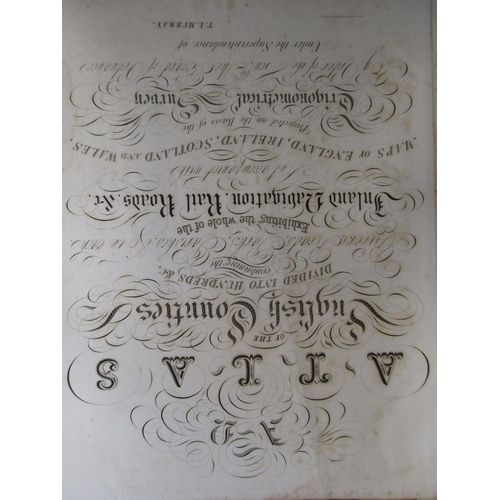 AN
ATLAS
OF THE
English Counties
DIVIDED INTO HUNDREDS &c.
containing the
Rivers, Roads, Parks, Parishes &c. in each
Exhibiting the whole of the
Inland Navigation Rail Roads, &c.
And accompanied with
MAPS OF ENGLAND, IRELAND, SCOTLAND AND WALES,
Projected on the Basis of the
Trigonometrical Survey
By Order of the Hon. the Board of Ordnance
Under the Superintendence of
T. L. MURRAY.